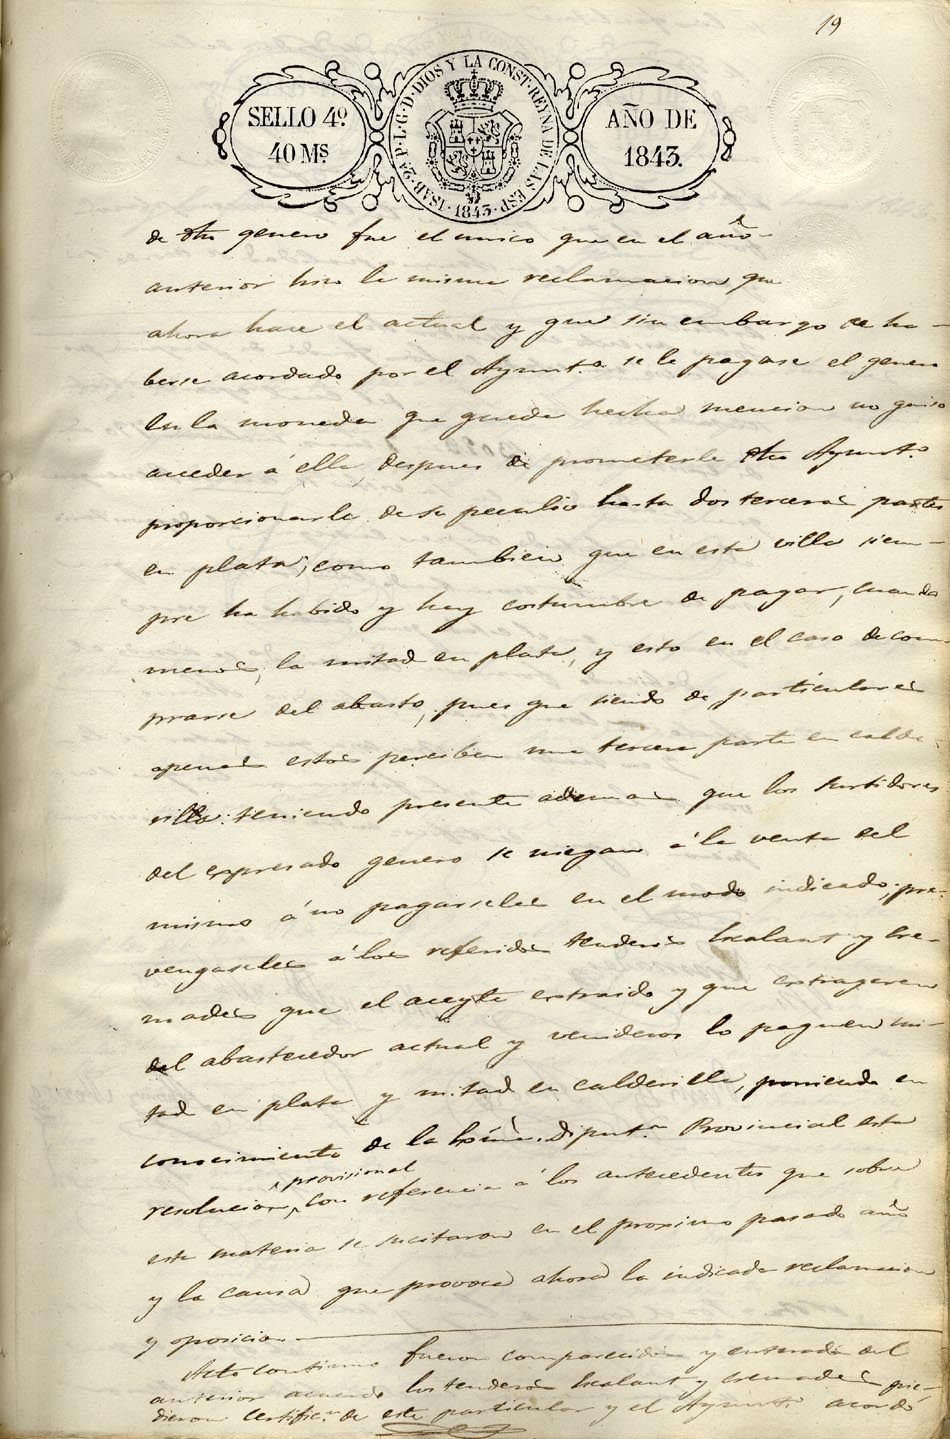 19
SELLO 4º
40 Ms
ISAB. 2ª P. L. G. D. DIOS Y LA CONST. REYNA DE LAS ESP.
1843
AÑO DE
1843.
de dho genero fue el unico que en el año
anterior hizo la misma reclamacion que
ahora hace el actual y que sin embargo de ha-
berse acordado por el Ayunt.º se le pagase el genero
en la moneda que queda hecha mencion no quiso
acceder á ella despues de prometerle dho Ayunt.º
proporcionarle de su peculio hasta dos terceras partes
en plata; como tambien que en esta villa siem-
pre ha habido y hay costumbre de pagar, cuando
menos, la mitad en plata, y esto en el caso de com-
prarse del abasto, pues que siendo de particulares
apenas estos perciben una tercera parte en calde-
rilla: teniendo presente ademas que los surtidores
del expresado genero se niegan á la venta del
mismo á no pagarseles en el modo indicado; pre-
vengaseles á los referidos tenderos Escalant y Cre-
mades que el aceyte extraido y que extrageren
del abastecedor actual y venideros lo paguen mi-
tad en plata y mitad en calderilla, poniendo en
conocimiento de la Diput.n Provincial esta
resolucion, provisional con referencia á los antecedentes que sobre
esta materia se sucitaron en el proximo pasado año
y la causa que provoca ahora la indicada reclamacion
y oposicion.
Acto continuo fueron comparecidos y enterados del
anterior acuerdo los tenderos Escalant y Cremades pi-
dieron certific.n de este particular y el Ayunt.º acordó